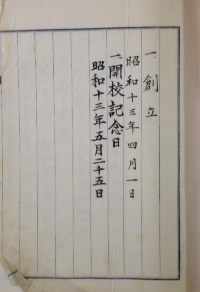 一、創立
昭和十三年四月一日
一、開校記念日
昭和十三年五月二十五日